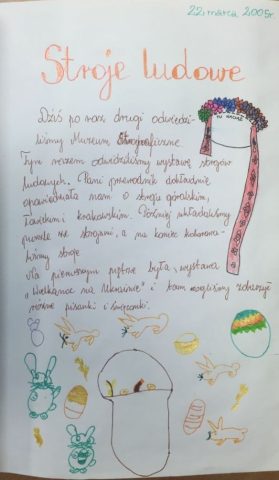 22 marca 2005r.
Stroje ludowe
TU WKŁADAĆ
Dziś po raz drugi odwiedzi-
liśmy Muzeum Etnograficzne.
Tym razem odwiedzaliśmy wystawę strojów
ludowych. Pani przewodnik dokładnie
opowiadała nam o stroju góralskim,
łowickim i krakowskim. Później układaliśmy
puzzle ze strojami, a na koniec kolorowa-
liśmy stroje
Na pierwszym piętrze była wystawa
"Wielkanoc na Ukrainie" i tam mogliśmy zobaczyć
różne pisanki i święconki.